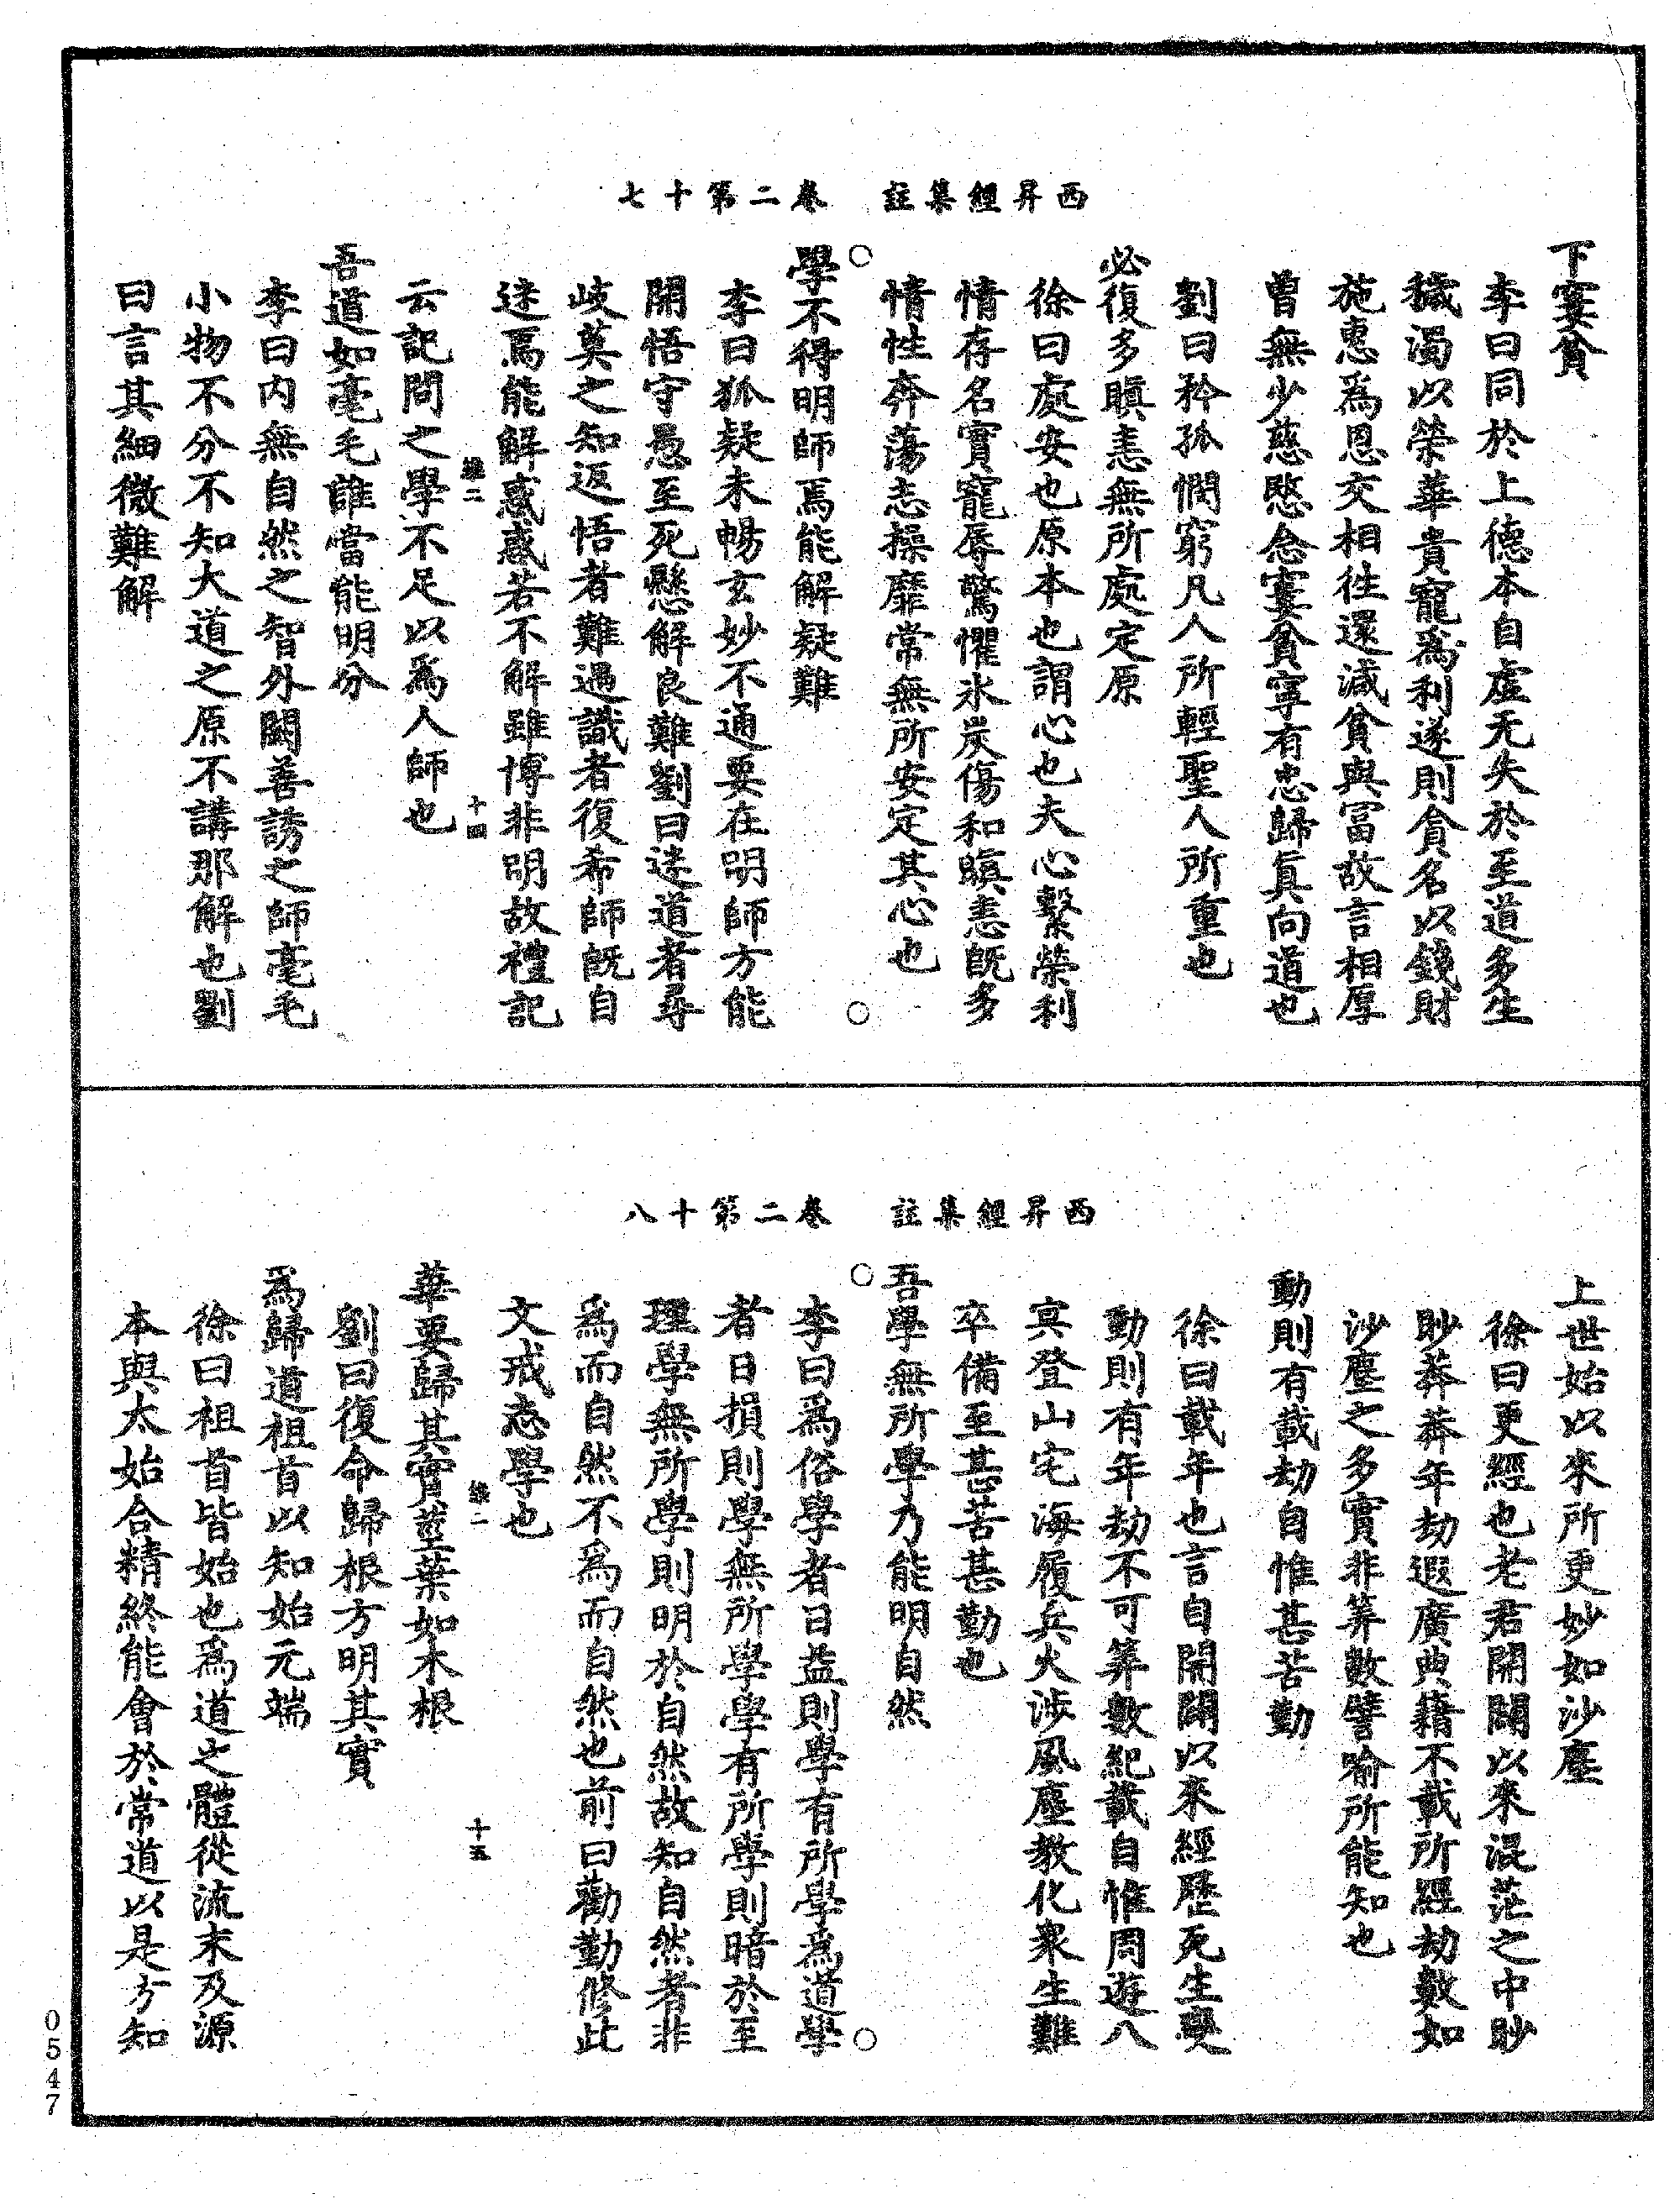 西昇經集註　卷二第十七
下寠貧
李曰同於上德本自虛无失於至道多生
穢濁以榮華貴寵爲利遂則貪名以錢財
施惠爲恩交相徃還減貧與冨故言相厚
曽無少慈愍念寠貧寧有忠歸真向道也
劉曰矜孤憫窮凡人所輕聖人所重也
必復多瞋恚無所處定原
徐曰處安也原本也謂心也夫心繫榮利
情存名實寵辱驚懼氷炭傷和瞋恚旣多
情性奔蕩志操靡常無所安定其心也
學不得明師焉能解疑難
李曰狐疑未暢玄妙不通要在明師方能
開悟守愚至死懸解良難劉曰迷道者尋
歧莫之知返悟者難遇識者復希師旣自
迷焉能解惑惑若不解雖博非明故禮記
云記問之學不足以爲人師也
吾道如毫毛誰當能明分
李曰内無自然之智外闕善誘之師毫毛
小物不分不知大道之原不講那解也劉
曰言其細微難解
西昇經集註　卷二第十八
上世始以來所更妙如沙塵
徐曰更經也老君開闢以來混茫之中眇
眇莽莽年劫遐廣典籍不載所經劫數如
沙塵之多實非筭數譬喻所能知也
動則有載劫自惟甚苦勤
徐曰載年也言自開闢以來經歷死生變
動則有年劫不可筭數紀載自惟周遊八
㝠登山宅海履兵火涉風塵教化衆生難
卒備至甚苦甚勤也
吾學無所學乃能明自然
李曰爲俗學者日益則學有所學爲道學
者日損則學無所學學有所學則暗於至
理學無所學則明於自然故知自然者非
爲而自然不爲而自然也前曰勸勤修此
文戒志學也
華要歸其實莖葉如木根
劉曰復命歸根方明其實
爲歸道祖首以知始元端
徐曰祖首皆始也爲道之體從流末及源
本與太始合精終能會於常道以是方知
十四
十五
0547